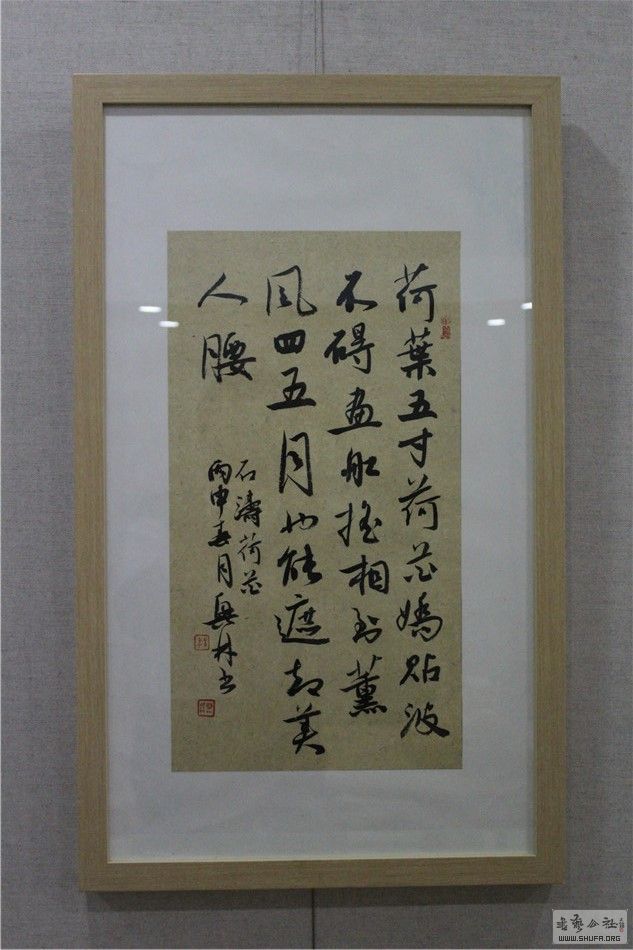 荷葉五寸荷花嬌貼波
不碍畫船摇相到薰
風四五月也能遮却美
人腰
石濤荷花
丙申春月興林书
書藝公社
WWW.SHUFA.ORG